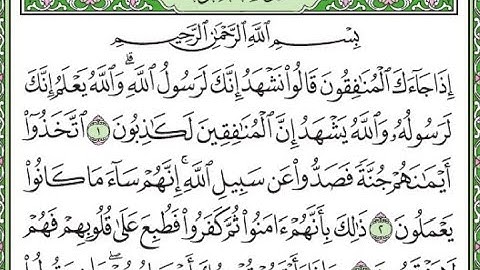 بِسْمِ ٱللَّهِ ٱلرَّحْمَٰنِ ٱلرَّحِيمِ
إِذَا جَآءَكَ ٱلْمُنَٰفِقُونَ قَالُوا۟ نَشْهَدُ إِنَّكَ لَرَسُولُ ٱللَّهِ ۗ وَٱللَّهُ يَعْلَمُ إِنَّكَ
لَرَسُولُهُۥ وَٱللَّهُ يَشْهَدُ إِنَّ ٱلْمُنَٰفِقِينَ لَكَٰذِبُونَ ١ ٱتَّخَذُوٓا۟
أَيْمَٰنَهُمْ جُنَّةً فَصَدُّوا۟ عَن سَبِيلِ ٱللَّهِ ۚ إِنَّهُمْ سَآءَ مَا كَانُوا۟
يَعْمَلُونَ ٢ ذَٰلِكَ بِأَنَّهُمْ ءَامَنُوا۟ ثُمَّ كَفَرُوا۟ فَطُبِعَ عَلَىٰ قُلُوبِهِمْ فَهُمْ